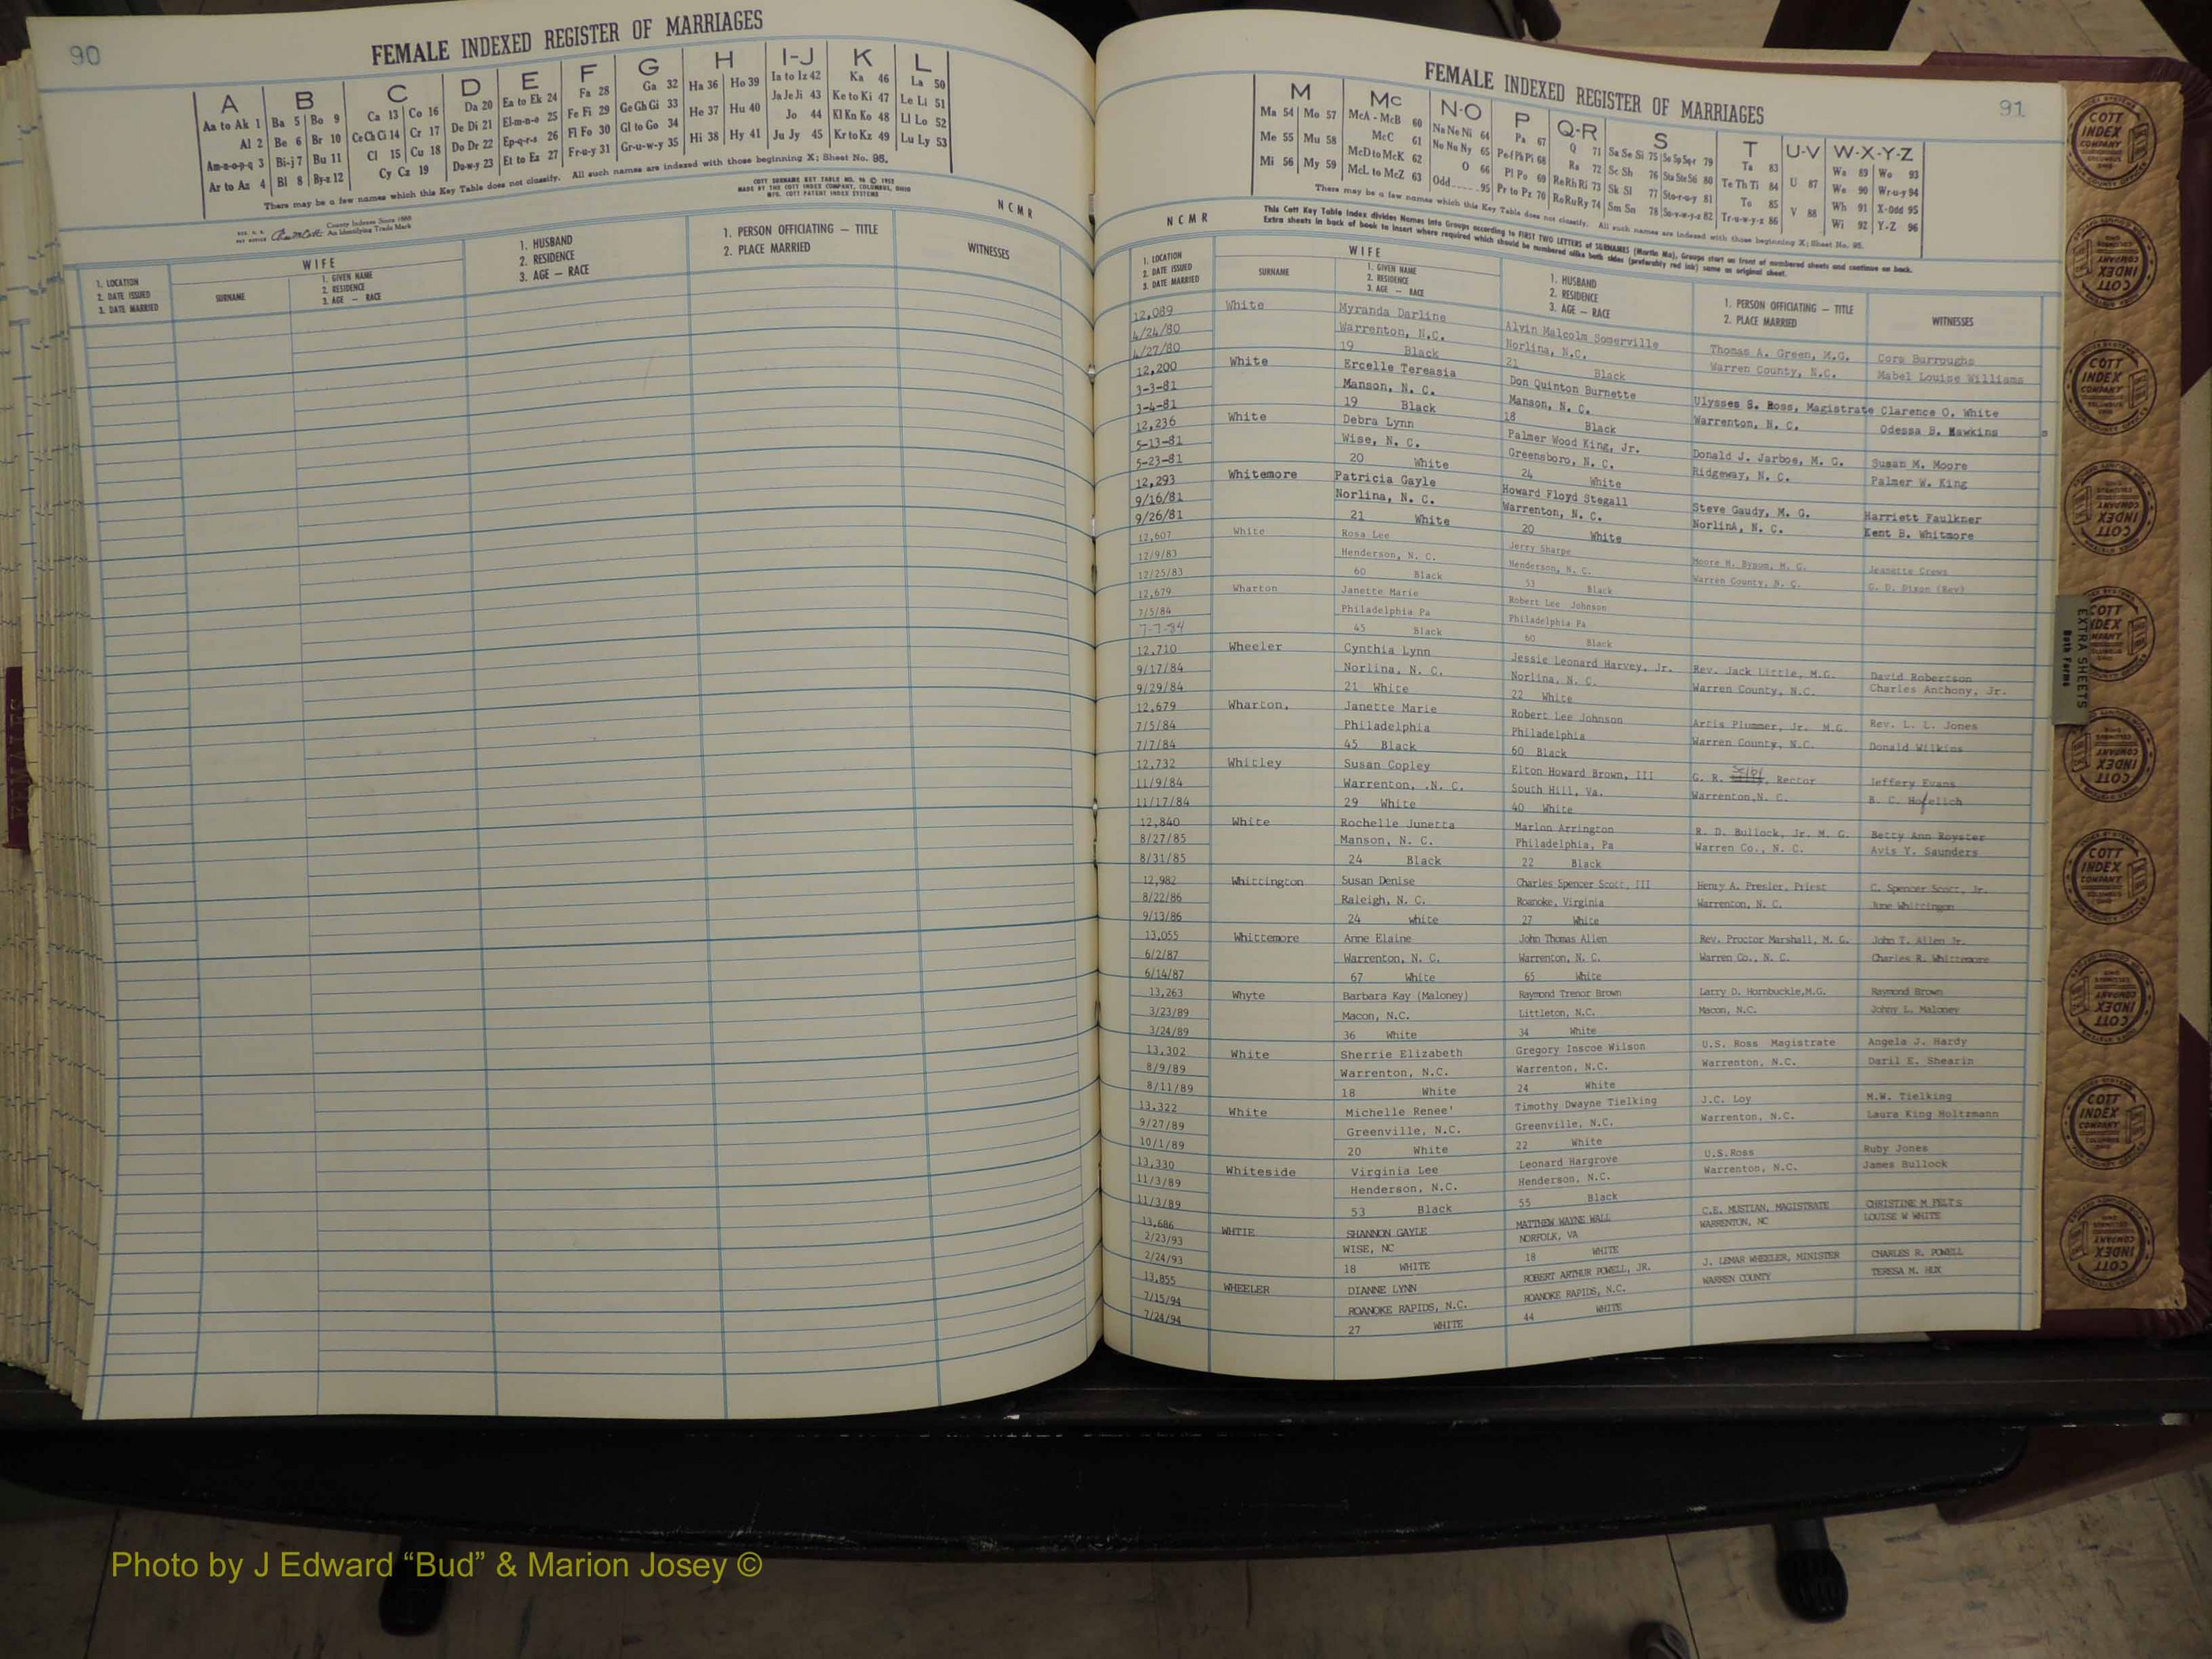 90
FEMALE INDEXED REGISTER OF MARRIAGES
A B C D E F G H I-J K L
Aa to Ak 1 Ba 5 Bo 9 Ca 13 Co 16 Da 20 Ea to Ek 24 Fa 28 Ga 32 Ha 36 Ho 39 Ia to Iz 42 Ka 46 La 50
Al 2 Be 6 Br 10 Ce Ch Ci 14 Cr 17 De Di 21 El-m-n-o 25 Fe Fi 29 Ge Gh Gi 33 He 37 Hu 40 Ja Je Ji 43 Ke to Ki 47 Le Li 51
Am-n-o-p-q 3 Bi-j 7 Bu 11 Cl 15 Cu 18 Do Dr 22 Ep-q-r-s 26 Fl Fo 30 Gl to Go 34 Hi 38 Hy 41 Jo 44 Kl Kn Ko 48 Ll Lo 52
Ar to Az 4 Bl 8 By-z 12 Cy Cz 19 Du-w-y 23 Et to Ez 27 Fr-u-y 31 Gr-u-w-y 35 Ju Jy 45 Kr to Kz 49 Lu Ly 53
There may be a few names which this Key Table does not classify. All such names are indexed with those beginning X; Sheet No. 95.
COTT SURNAME KEY TABLE NO. 96 © 1952
MADE BY THE COTT INDEX COMPANY, COLUMBUS, OHIO
MFG. COTT PATENT INDEX SYSTEMS
County Indexes Since 1888
An Identifying Trade Mark
NCMR
1. LOCATION
2. DATE ISSUED
3. DATE MARRIED
WIFE
SURNAME
1. GIVEN NAME
2. RESIDENCE
3. AGE — RACE
1. HUSBAND
2. RESIDENCE
3. AGE — RACE
1. PERSON OFFICIATING — TITLE
2. PLACE MARRIED
WITNESSES
FEMALE INDEXED REGISTER OF MARRIAGES
91
M Mc N-O P Q-R S T U-V W-X-Y-Z
Ma 54 Mo 57 McA - McB 60 Na Ne Ni 64 Pa 67 Q 71 Sa Se Si 75 So Sp Sq-r 79 Ta 83 U 87 Wa 89 Wo 93
Me 55 Mu 58 McC 61 No Nu Ny 65 Pe-f Ph Pi 68 Ra 72 Sc Sh 76 Sta Ste Sti 80 Te Th Ti 84 V 88 We 90 Wr-u-y 94
Mi 56 My 59 McD to McK 62 O 66 Pl Po 69 Re Rh Ri 73 Sk Sl 77 Sto-r-u-y 81 To 85 Wh 91 X-Odd 95
McL to McZ 63 Odd 95 Pr to Pz 70 Ro Ru Ry 74 Sm Sn 78 Su-v-w-y-z 82 Tr-u-w-y-z 86 Wi 92 Y-Z 96
There may be a few names which this Key Table does not classify. All such names are indexed with those beginning X; Sheet No. 95.
This Cott Key Table Index divides Names into Groups according to FIRST TWO LETTERS of SURNAMES (Martin Ma), Groups start on front of numbered sheets and continue on back.
Extra sheets in back of book to insert where required which should be numbered alike both sides (preferably red ink) same as original sheet.
NCMR
1. LOCATION
2. DATE ISSUED
3. DATE MARRIED
WIFE
SURNAME
1. GIVEN NAME
2. RESIDENCE
3. AGE — RACE
1. HUSBAND
2. RESIDENCE
3. AGE — RACE
1. PERSON OFFICIATING — TITLE
2. PLACE MARRIED
WITNESSES
12,089 White Myranda Darline Alvin Malcolm Somerville Thomas A. Green, M.G. Cora Burroughs
4/24/80 Warrenton, N.C. Norlina, N.C. Warren County, N.C. Mabel Louise Williams
4/27/80 19 Black 21 Black
12,200 White Ercelle Tereasia Don Quinton Burnette Ulysses S. Ross, Magistrate Clarence O. White
3-3-81 Manson, N. C. Manson, N. C. Warrenton, N. C. Odessa B. Hawkins
3-4-81 19 Black 18 Black
12,236 White Debra Lynn Palmer Wood King, Jr. Donald J. Jarboe, M. G. Susan M. Moore
5-13-81 Wise, N. C. Greensboro, N. C. Ridgeway, N. C. Palmer W. King
5-23-81 20 White 24 White
12,293 Whitemore Patricia Gayle Howard Floyd Stegall Steve Gaudy, M. G. Harriett Faulkner
9/16/81 Norlina, N. C. Warrenton, N. C. NorlinA, N. C. Kent B. Whitmore
9/26/81 21 White 20 White
12,607 White Rosa Lee Jerry Sharpe Moore H. Bynum, M. G. Jeanette Crews
12/9/83 Henderson, N. C. Henderson, N. C. Warren County, N. C. G. D. Dixon (Rev)
12/25/83 60 Black 53 Black
12,679 Wharton Janette Marie Robert Lee Johnson
7/5/84 Philadelphia Pa Philadelphia Pa
7-7-84 45 Black 60 Black
12,710 Wheeler Cynthia Lynn Jessie Leonard Harvey, Jr. Rev. Jack Little, M.G. David Robertson
9/17/84 Norlina, N. C. Norlina, N. C. Warren County, N.C. Charles Anthony, Jr.
9/29/84 21 White 22 White
12,679 Wharton, Janette Marie Robert Lee Johnson Artis Plummer, Jr. M.G. Rev. L. L. Jones
7/5/84 Philadelphia Philadelphia Warren County, N.C. Donald Wilkins
7/7/84 45 Black 60 Black
12,732 Whitley Susan Copley Elton Howard Brown, III G. R. Selby, Rector Jeffery Evans
11/9/84 Warrenton, .N. C. South Hill, Va. Warrenton,N. C. B. C. Hofelich
11/17/84 29 White 40 White
12,840 White Rochelle Junetta Marlon Arrington R. D. Bullock, Jr. M. G. Betty Ann Royster
8/27/85 Manson, N. C. Philadelphia, Pa Warren Co., N. C. Avis Y. Saunders
8/31/85 24 Black 22 Black
12,982 Whittington Susan Denise Charles Spencer Scott, III Henry A. Presler, Priest C. Spencer Scott, Jr.
8/22/86 Raleigh, N. C. Roanoke, Virginia Warrenton, N. C. June Whittingon
9/13/86 24 white 27 White
13,055 Whittemore Anne Elaine John Thomas Allen Rev. Proctor Marshall, M. G. John T. Allen Jr.
6/2/87 Warrenton, N. C. Warrenton, N. C. Warren Co., N. C. Charles R. Whittemore
6/14/87 67 White 65 White
13,263 Whyte Barbara Kay (Maloney) Raymond Trenor Brown Larry D. Hornbuckle,M.G. Raymond Brown
3/23/89 Macon, N.C. Littleton, N.C. Macon, N.C. Johny L. Maloney
3/24/89 36 White 34 White
13,302 White Sherrie Elizabeth Gregory Inscoe Wilson U.S. Ross Magistrate Angela J. Hardy
8/9/89 Warrenton, N.C. Warrenton, N.C. Warrenton, N.C. Daril E. Shearin
8/11/89 18 White 24 White
13,322 White Michelle Renee' Timothy Dwayne Tielking J.C. Loy M.W. Tielking
9/27/89 Greenville, N.C. Greenville, N.C. Warrenton, N.C. Laura King Holtzmann
10/1/89 20 White 22 White
13,330 Whiteside Virginia Lee Leonard Hargrove U.S.Ross Ruby Jones
11/3/89 Henderson, N.C. Henderson, N.C. Warrenton, N.C. James Bullock
11/3/89 53 Black 55 Black
13,686 WHTIE SHANNON GAYLE MATTHEW WAYNE WALL C.E. MUSTIAN, MAGISTRATE CHRISTINE M FELTS
2/23/93 WISE, NC NORFOLK, VA WARRENTON, NC LOUISE W WHITE
2/24/93 18 WHITE 18 WHITE
13,855 WHEELER DIANNE LYNN ROBERT ARTHUR POWELL, JR. J. LEMAR WHEELER, MINISTER CHARLES R. POWELL
7/15/94 ROANOKE RAPIDS, N.C. ROANOKE RAPIDS, N.C. WARREN COUNTY TERESA M. HUX
7/24/94 27 WHITE 44 WHITE
EXTRA SHEETS
Both Forms
COTT INDEX COMPANY
Photo by J Edward “Bud” & Marion Josey ©